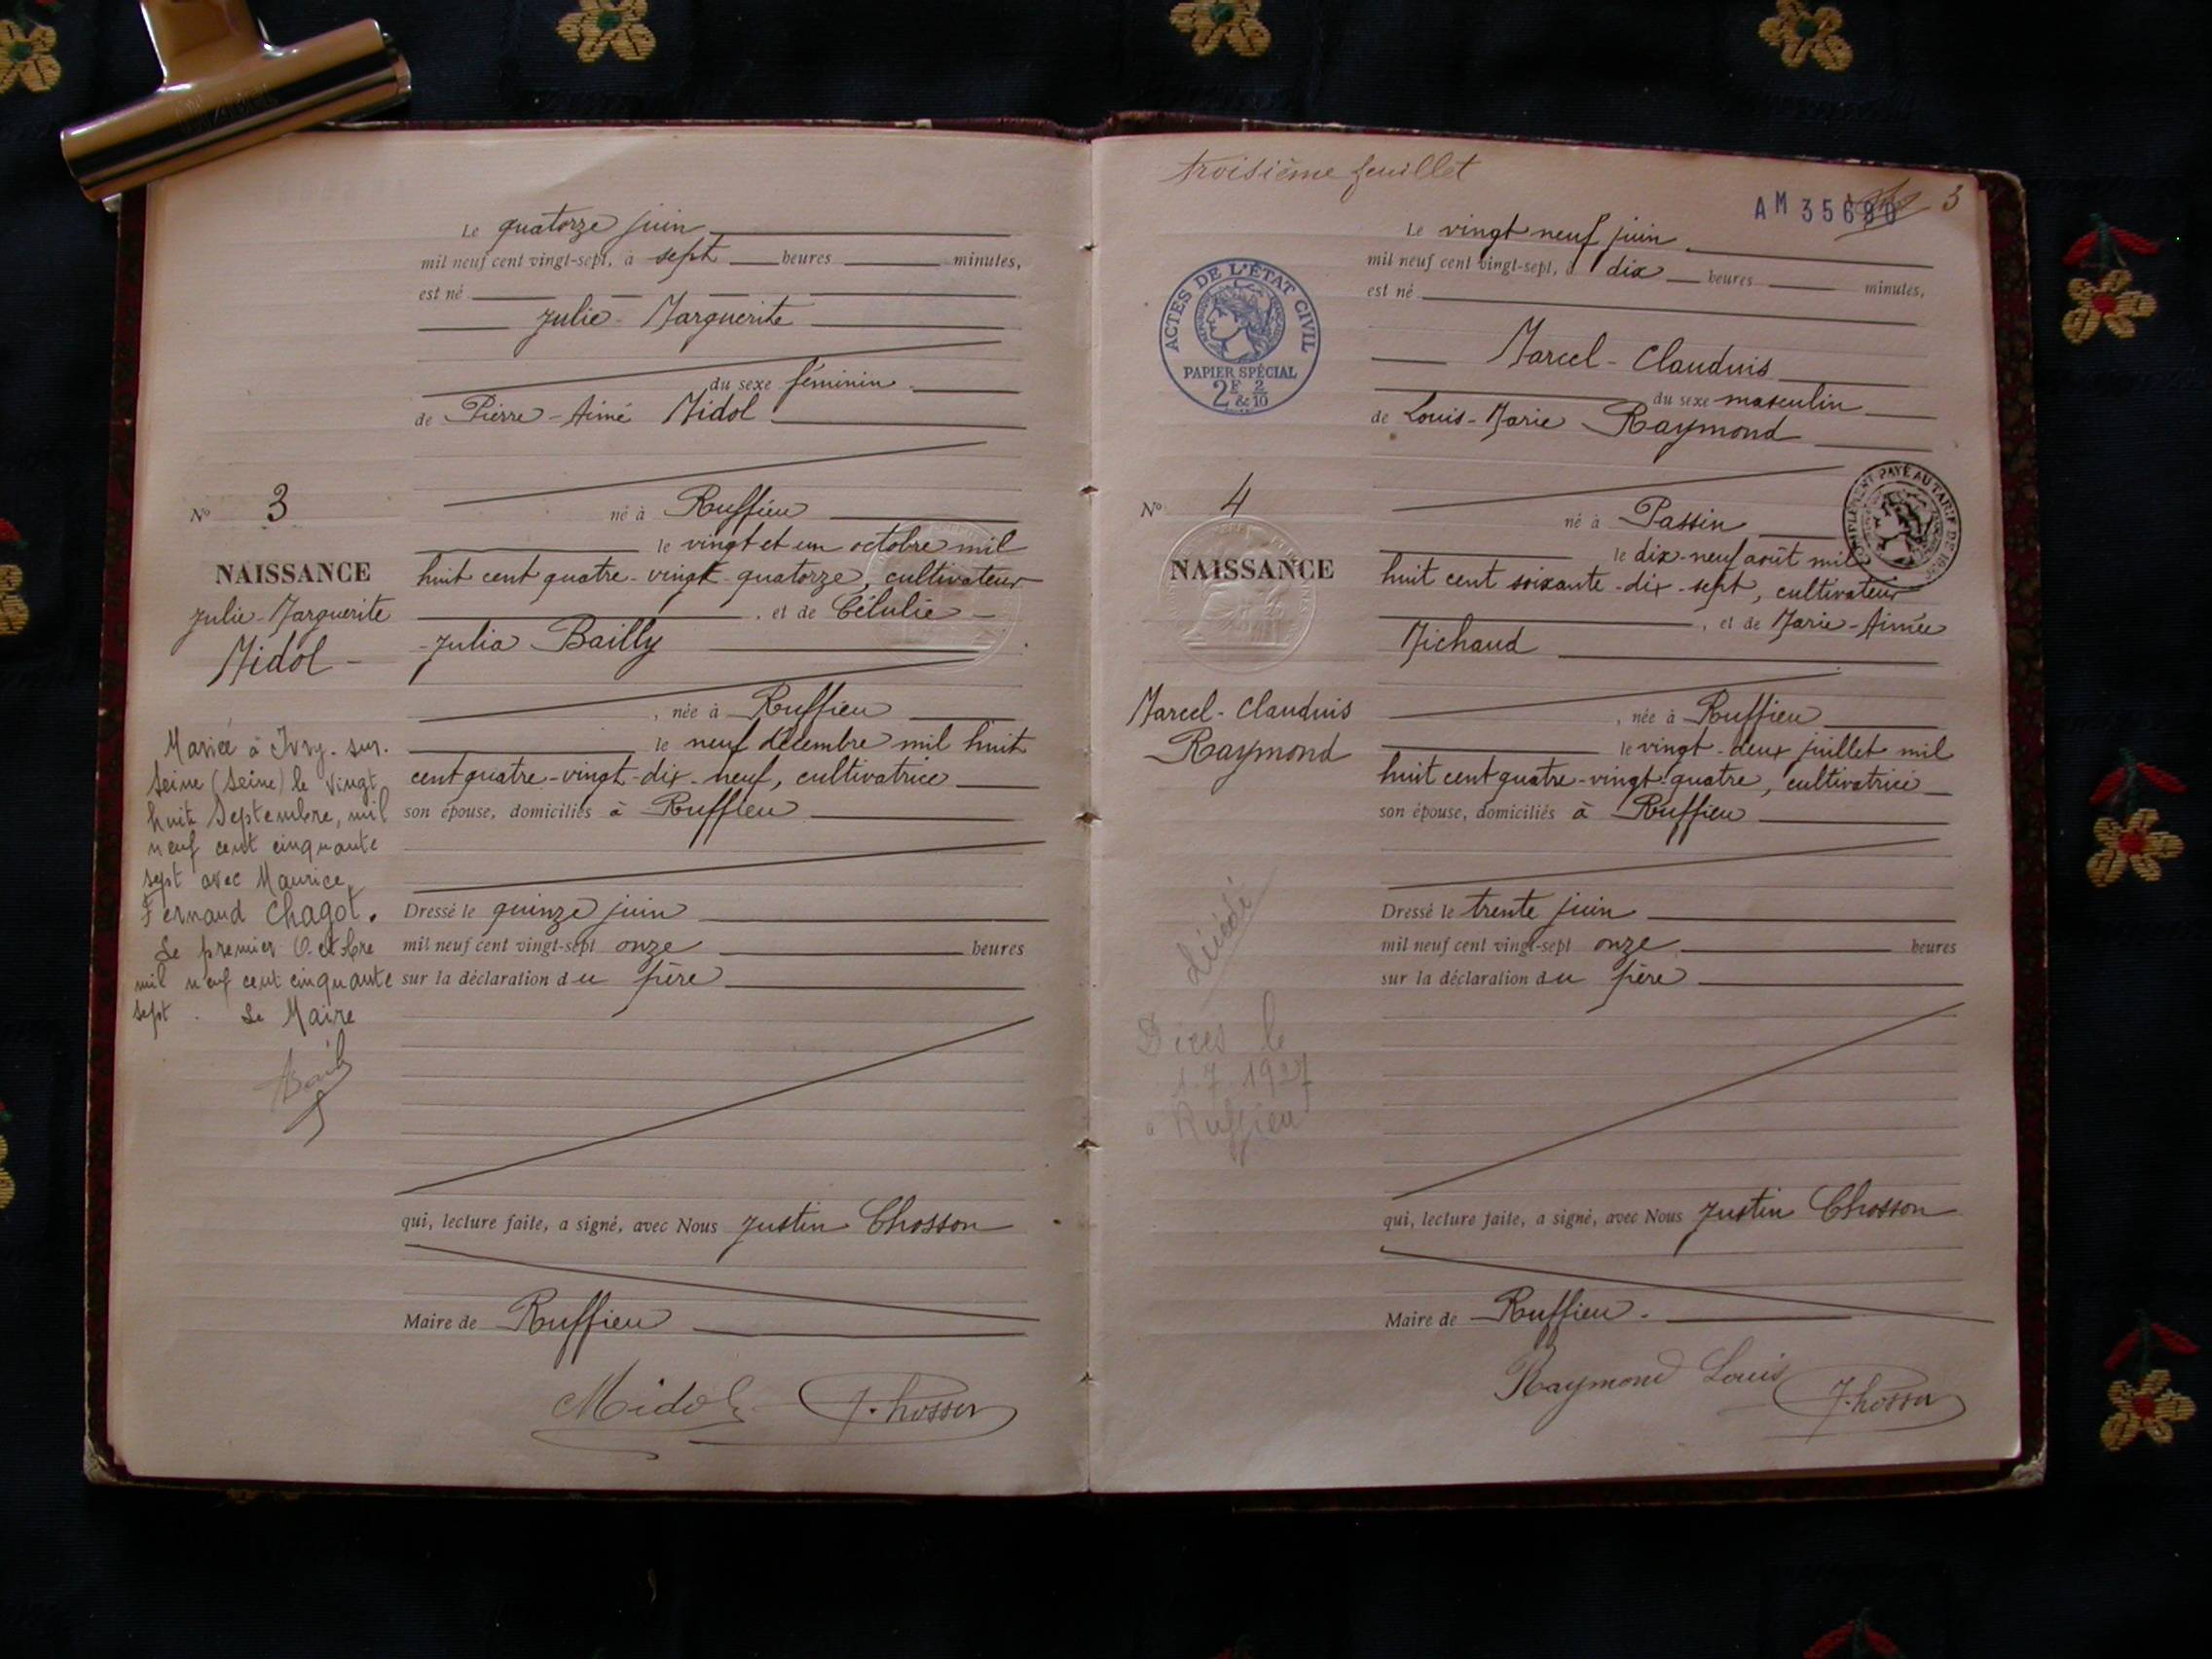 Le quatorze juin
mil neuf cent vingt-sept, à sept heures minutes,
est né
Julie-Marguerite
du sexe féminin
de Pierre-Aimé Midol
né à Ruffieu
le vingt et un octobre mil
huit cent quatre-vingt-quatorze, cultivateur
, et de Célulie-
Julia Bailly
, née à Ruffieu
le neuf décembre mil huit
cent quatre-vingt-dix-neuf, cultivatrice
son épouse, domiciliés à Ruffieu
Dressé le quinze juin
mil neuf cent vingt-sept onze heures
sur la déclaration du père
qui, lecture faite, a signé, avec Nous Justin Chosson
Maire de Ruffieu
Midol J. Chosson
No 3
NAISSANCE
Julie-Marguerite
Midol
Mariée à Ivry-sur-
Seine (Seine) le vingt
huit Septembre, mil
neuf cent cinquante
sept avec Maurice,
Fernand Chagot.
Le premier Octobre
mil neuf cent cinquante
sept. Le Maire
troisième feuillet
AM 35680 3
ACTES DE L'ÉTAT CIVIL
PAPIER SPÉCIAL
2F & 2/10
Le vingt neuf juin
mil neuf cent vingt-sept, à dix heures minutes,
est né
Marcel-Claudius
du sexe masculin
de Louis-Marie Raymond
COMPLÉMENT PAYÉ AU TARIF DE
né à Passin
le dix-neuf août mil
huit cent soixante-dix-sept, cultivateur
, et de Marie-Aimée
Michaud
, née à Ruffieu
le vingt-deux juillet mil
huit cent quatre-vingt-quatre, cultivatrice
son épouse, domiciliés à Ruffieu
Dressé le trente juin
mil neuf cent vingt-sept onze heures
sur la déclaration du père
qui, lecture faite, a signé, avec Nous Justin Chosson
Maire de Ruffieu.
Raymond Louis J. Chosson
No 4
NAISSANCE
Marcel-Claudius
Raymond
décédé
Dices le
1.7.1927
à Ruffieu